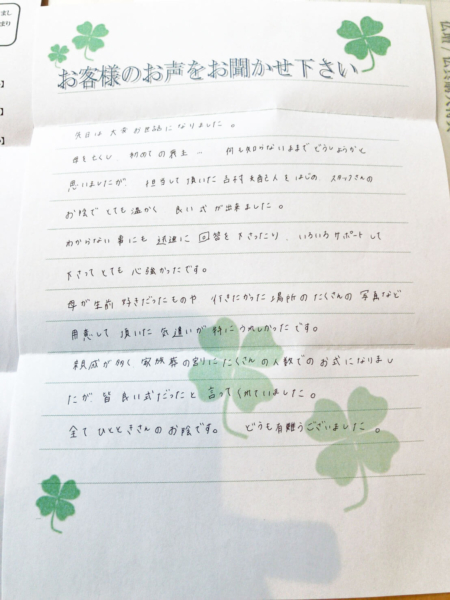 お客様のお声をお聞かせ下さい
先日は大変お世話になりました。
母を亡くし 初めての喪主… 何も知らないままでどうしようかと
思いましたが、担当して頂いた さんをはじめ スタッフさんの
お陰でとても温かく 良い式が出来ました。
わからない事にも 迅速に回答を下さったり、いろいろサポートして
下さってとても心強かったです。
母が生前好きだったものや 行きたかった場所のたくさんの写真など
用意して頂いた気遣いが特にうれしかったです。
親戚が多く 家族葬の割にたくさんの人数でのお式になりまし
たが 皆良い式だったと言ってくれていました。
全てひとときさんのお陰です。 どうも有難うございました。